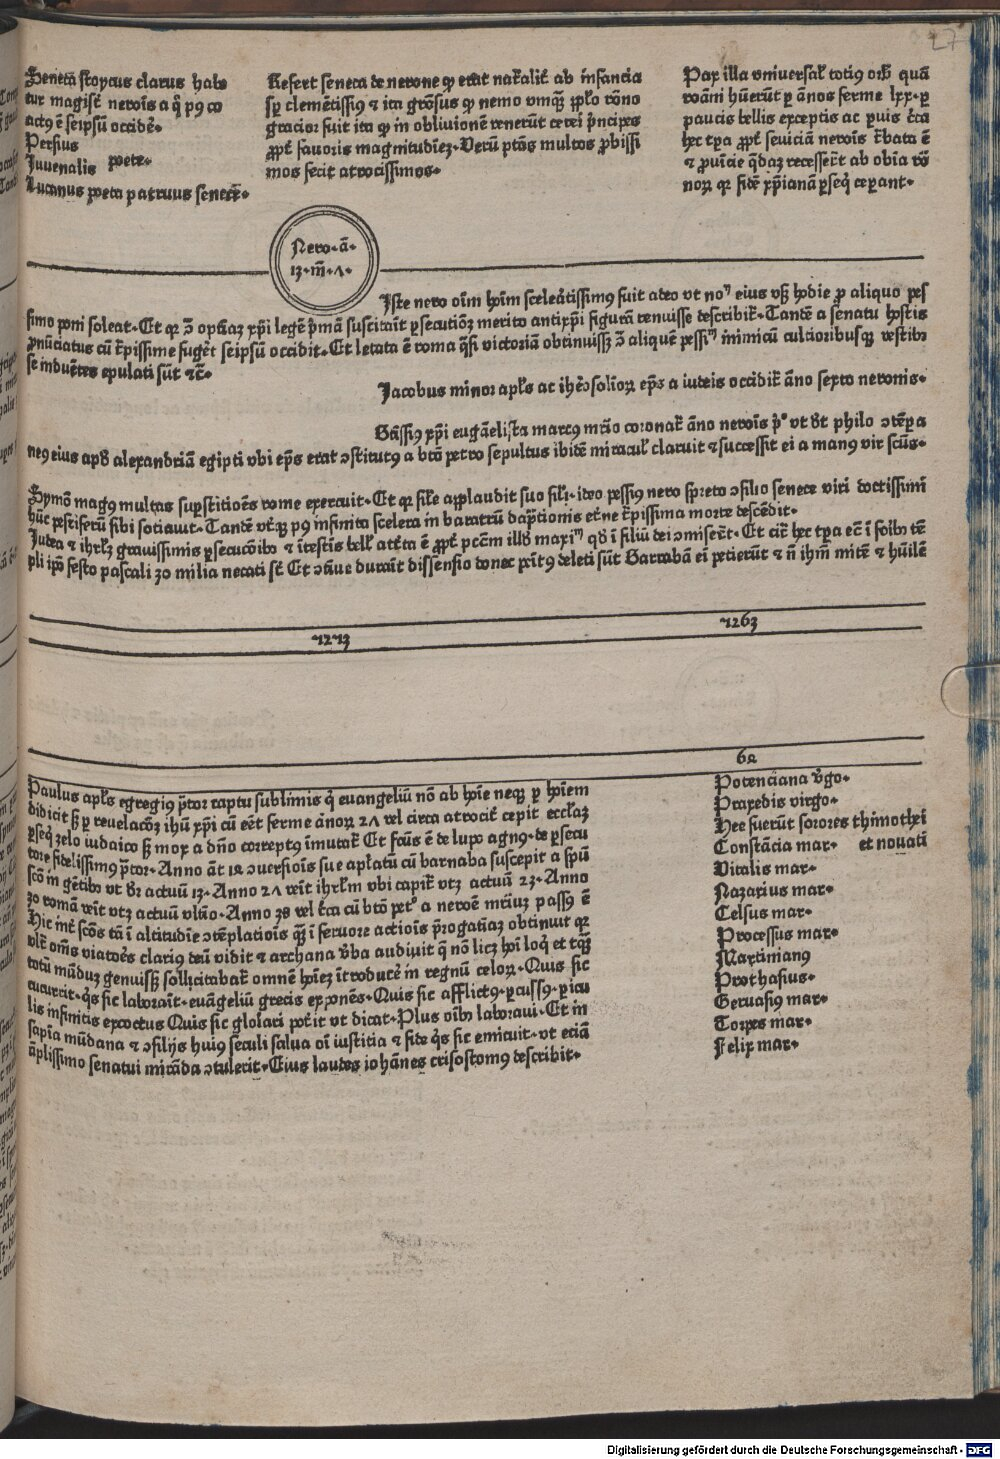 27
Senecā stoycus clarus habe
tur magist̄ nerōis a q̄ p9 co
act9 ē seipsū occidē.
Persius
Juvenalis poete.
Lucanus poeta patruus senece.
Refert seneca de nerone qꝫ erat nat̄alit̄ ab infancia
sꝑ clemētissi9 ⁊ ita grōsus qꝫ nemo vmqꝫ ꝓplo rōno
gracior fuit ita qꝫ in oblivionē venerūt ceteri p̄ncipes
ꝓpt̄ favoris magnitudinē. Verū ptōs multos ꝓbissi
mos fecit atrocissimos.
Pax illa vniversal̄ toti9 orb̄ quā
roāni hūerūt ꝑ ānos ferme lxx. ꝑ
paucis bellis exceptis ac puis c̄ca
hec tꝑa ꝓpt̄ seviciā nerōis t̄bata ē
⁊ ꝓuīcie q̄daꝫ recesserūt ab obīa rō
noꝝ qꝫ fidē xp̄ianā ꝑseq̄ ceperant.
Nero. ā.
13. m̄. Λ.
Iste nero oīm hoīm sceleātissim9 fuit adeo vt no eius vsqꝫ hodie ꝓ aliquo pes
simo poni soleat. Et qꝫ ↄ̄ optīaꝫ xp̄i legē p̄mā suscitauit ꝑsecutiōꝫ merito antixp̄i figurā tenuisse describit̄. Tandē a senatu hostis
ꝓnūciatus cū t̄pissime fuget̄ seipsū occidit. Et letata ē roma q̄si victoriā obtinuisset ↄ̄ aliquē pessi inimicū culcioribusqꝫ vestibꝫ
se induētes epulati sūt ⁊c̄.
Jacobus minor apl̄s ac ih̄rosolioꝝ ep̄s a iudeis occidit̄ āno sexto neronis.
Bāssi9 xp̄i eugāelista marc9 mr̄io coronat̄ āno nerōis p̄ vt dt̄ philo ↄtēꝑa
ne9 eius apd̄ alexandriā egipti vbi ep̄s erat ↄstitut9 a bt̄o petro sepultus ibidē miracul̄ claruit ⁊ successit ei a man9 vir scūs.
Symō mag9 multas suꝑstitiōēs rome exercuit. Et qꝫ sil̄e applaudit suo sil̄i. ideo pessi9 nero sp̄reto ↄsilio senece viri doctissimi
hūc pestiferū sibi sotiavit. Tandē vt̄qꝫ p9 infinita scelera in baratrū dap̄tionis et̄ne t̄pissima morte descēdit.
Judea ⁊ ih̄rl̄ꝫ gravissimis ꝑsecucōibꝫ ⁊ ītestīs bell̄ att̄ta ē ꝓpt̄ pc̄m illd̄ maxi qd̄ ī filiū dei ↄmiserūt. Et cit̄ hec tꝑa ec̄ ī foibꝫ tē
pli ip̄o festo pascali 30 milia necati sūt Et ↄtīue durāit dissensio donec peīt9 deleti sūt Barrabā ei petierūt ⁊ n̄ ih̄m mitē ⁊ hūilē
4243
4263
62
Paulus apl̄s egregi9 p̄tor raptu sublimis q̄ euangeliū nō ab hoīe neqꝫ ꝑ hoīem
didicit sꝫ ꝑ reuelacōꝫ ihū xp̄i cū eēt ferme ānoꝝ 2Λ vel circa atrocit̄ cepit eccl̄aꝫ
ꝑseq̄ zelo iudaico sꝫ mox a dn̄o corrept9 imutat̄ Et fcūs ē de lupo agn9. de ꝑsecu
tore fidelissim9 p̄tor. Anno āt 12 ↄuersiois sue apl̄atū cū barnaba suscepit a spū
scō in gētibꝫ vt dꝫ actuū 13. Anno 2Λ vēit ihrl̄m vbi capit̄ vtꝫ actuū 23. Anno
30 romā vēit vtꝫ actuū vltīo. Anno 38 vel c̄ca cū bt̄o pet̄ a neroē mr̄iuꝫ pass9 ē
Hic int̄ scōs tā ī altitudīe ↄtēplatiōis qꝫ ī fervore actiōis p̄rogatīaꝫ obtinuit qꝫ
vlt̄ om̄s viatoēs clari9 deū vidit ⁊ archana v̄ba audiuit q̄ nō licꝫ hoī loq̄ et tqꝫ
totū mūduꝫ genuissꝫ sollicitabat̄ omnē hoīeꝫ ītroducē in regnū celoꝝ. Quis sic
cucurrit. q̄s sic laborāit. euāgeliū grecis exponēs. Quis sic afflict9. ꝑcuss9. ꝑicu
lis infinitis excoctus Quis sic gloriari pot̄it vt dicat. Plus oībꝫ laboravi. Et in
sapīa mūdana ⁊ ↄsilijs hui9 seculi salua oī iustitia ⁊ fide q̄s sic emicuit. vt etiā
āplissimo senatui mirāda ↄtulerit. Eius laudes iohānes crisostom9 describit.
Potenciana v̄go.
Praxedis virgo.
Hee fuerūt sorores thimothei
Constācia mar. et novati
Vitalis mar.
Nazarius mar.
Celsus mar.
Processus mar.
Martinian9
Prothasius.
Gervasi9 mar.
Torpes mar.
Felix mar.
Digitalisierung gefördert durch die Deutsche Forschungsgemeinschaft - DFG